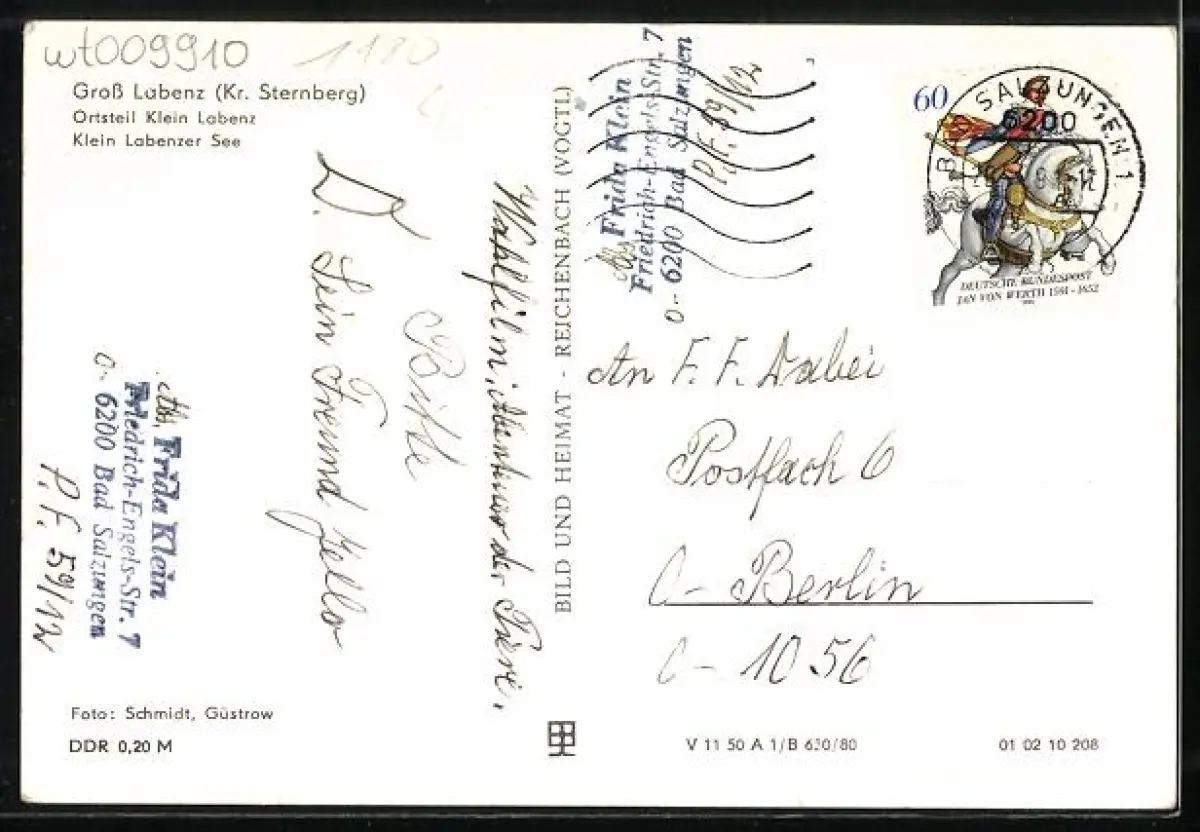 wt009910
1180
Groß Labenz (Kr. Sternberg)
Ortsteil Klein Labenz
Klein Labenzer See
D.
Dein Freund Jello
Bitte
Wahlfilm, Abenteuer der Tiere.
Abs. Frida Klein
Friedrich-Engels-Str. 7
O- 6200 Bad Salzungen
P.F. 59/12
Foto: Schmidt, Güstrow
DDR 0,20 M
BILD UND HEIMAT - REICHENBACH (VOGTL)
Abs Frida Klein
Friedrich-Engels-Str. 7
O- 6200 Bad Salzungen
P.F. 59/12
60
BAD SALZUNGEN 1
6200
DEUTSCHE BUNDESPOST
JAN VON WERTH 1591-1652
An F. F. Dabei
Postfach 6
O- Berlin
O- 1056
V 11 50 A 1/B 630/80
01 02 10 208